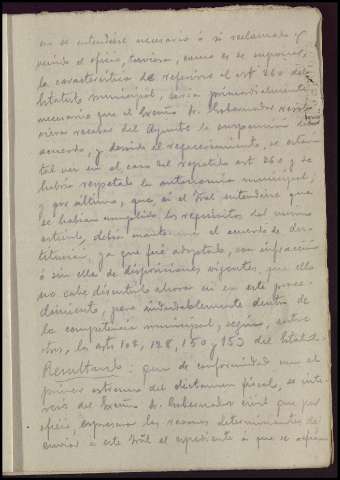 no se entendiese necesario ó si reclamado y
venido el oficio, tuviese, como es de suponer,
la característica de referirse el artº 260 del
Estatuto municipal, sería primordialmente
necesario que el Excmo Sr. Gobernador
recabar del Ayunto la suspensión del
acuerdo, y desoido el requerimiento, se estaría
tal vez en el caso del repetido art 260 y se
habría respetado la autonomía municipal;
y por último, que, si el Tral entendiese que
se habían cumplido los requisitos del mismo
artículo, debía mantener el acuerdo de des-
titución, ya que fué adoptado, con infracción
ó sin ella de disposiciones vigentes, que ello
no cabe discutirlo ahora ni en este proce-
dimiento, pero indudablemente dentro de
la competencia municipal, según, entre
otros, los arts 108, 128, 150 y 153 del Estatuto.
Resultando: que de conformidad con el
primer extremo del dictamen fiscal, se inte-
resó del Excmo Sr. Gobernador civil que por
oficio, expresara las razones determinantes de
enviar a este Tral el expediente á que se